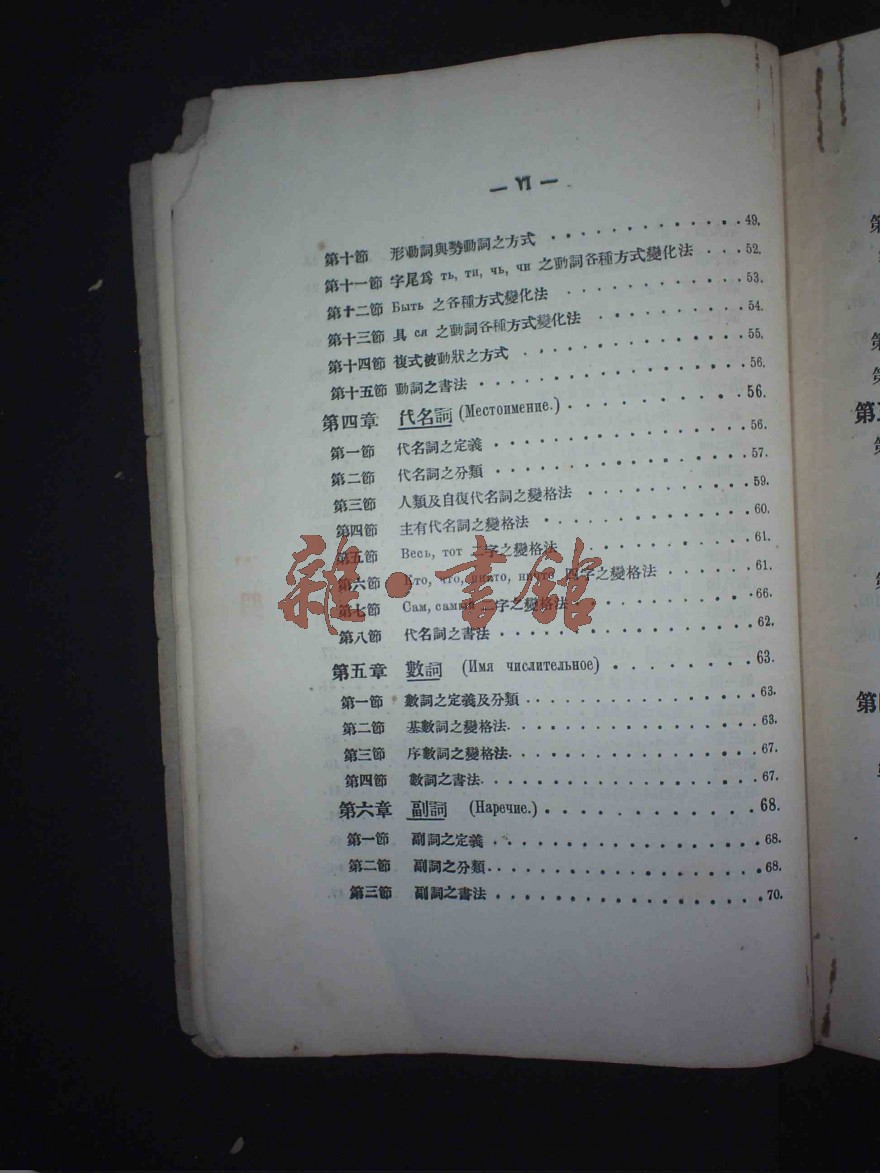 — VI —
第十節 形動詞與勢動詞之方式 · · · · · · · · · · · · · 49.
第十一節 字尾爲 ть, ти, чь, чи 之動詞各種方式變化法 · · · 52.
第十二節 Быть 之各種方式變化法 · · · · · · · · · · · · 53.
第十三節 具 ся 之動詞各種方式變化法 · · · · · · · · · · 54.
第十四節 複式被動狀之方式 · · · · · · · · · · · · · · 55.
第十五節 動詞之書法 · · · · · · · · · · · · · · · · · 56.
第四章 代名詞 (Местоимение.) · · · · · · · · · · · 56.
第一節 代名詞之定義 · · · · · · · · · · · · · · · · 56.
第二節 代名詞之分類 · · · · · · · · · · · · · · · · 57.
第三節 人類及自復代名詞之變格法 · · · · · · · · · · 59.
第四節 主有代名詞之變格法 · · · · · · · · · · · · · 60.
第五節 Весь, тот 二字之變格法 · · · · · · · · · · · 61.
第六節 Кто, что, никто, ничто 四字之變格法 · · · · · 61.
第七節 Сам, самый 二字之變格法 · · · · · · · · · · 66.
第八節 代名詞之書法 · · · · · · · · · · · · · · · · 62.
第五章 數詞 (Имя числительное) · · · · · · · · · 63.
第一節 數詞之定義及分類 · · · · · · · · · · · · · · 63.
第二節 基數詞之變格法 · · · · · · · · · · · · · · · 63.
第三節 序數詞之變格法 · · · · · · · · · · · · · · · 67.
第四節 數詞之書法 · · · · · · · · · · · · · · · · · 67.
第六章 副詞 (Наречие.) · · · · · · · · · · · · · 68.
第一節 副詞之定義 · · · · · · · · · · · · · · · · · 68.
第二節 副詞之分類 · · · · · · · · · · · · · · · · · 68.
第三節 副詞之書法 · · · · · · · · · · · · · · · · · 70.
雜·書館